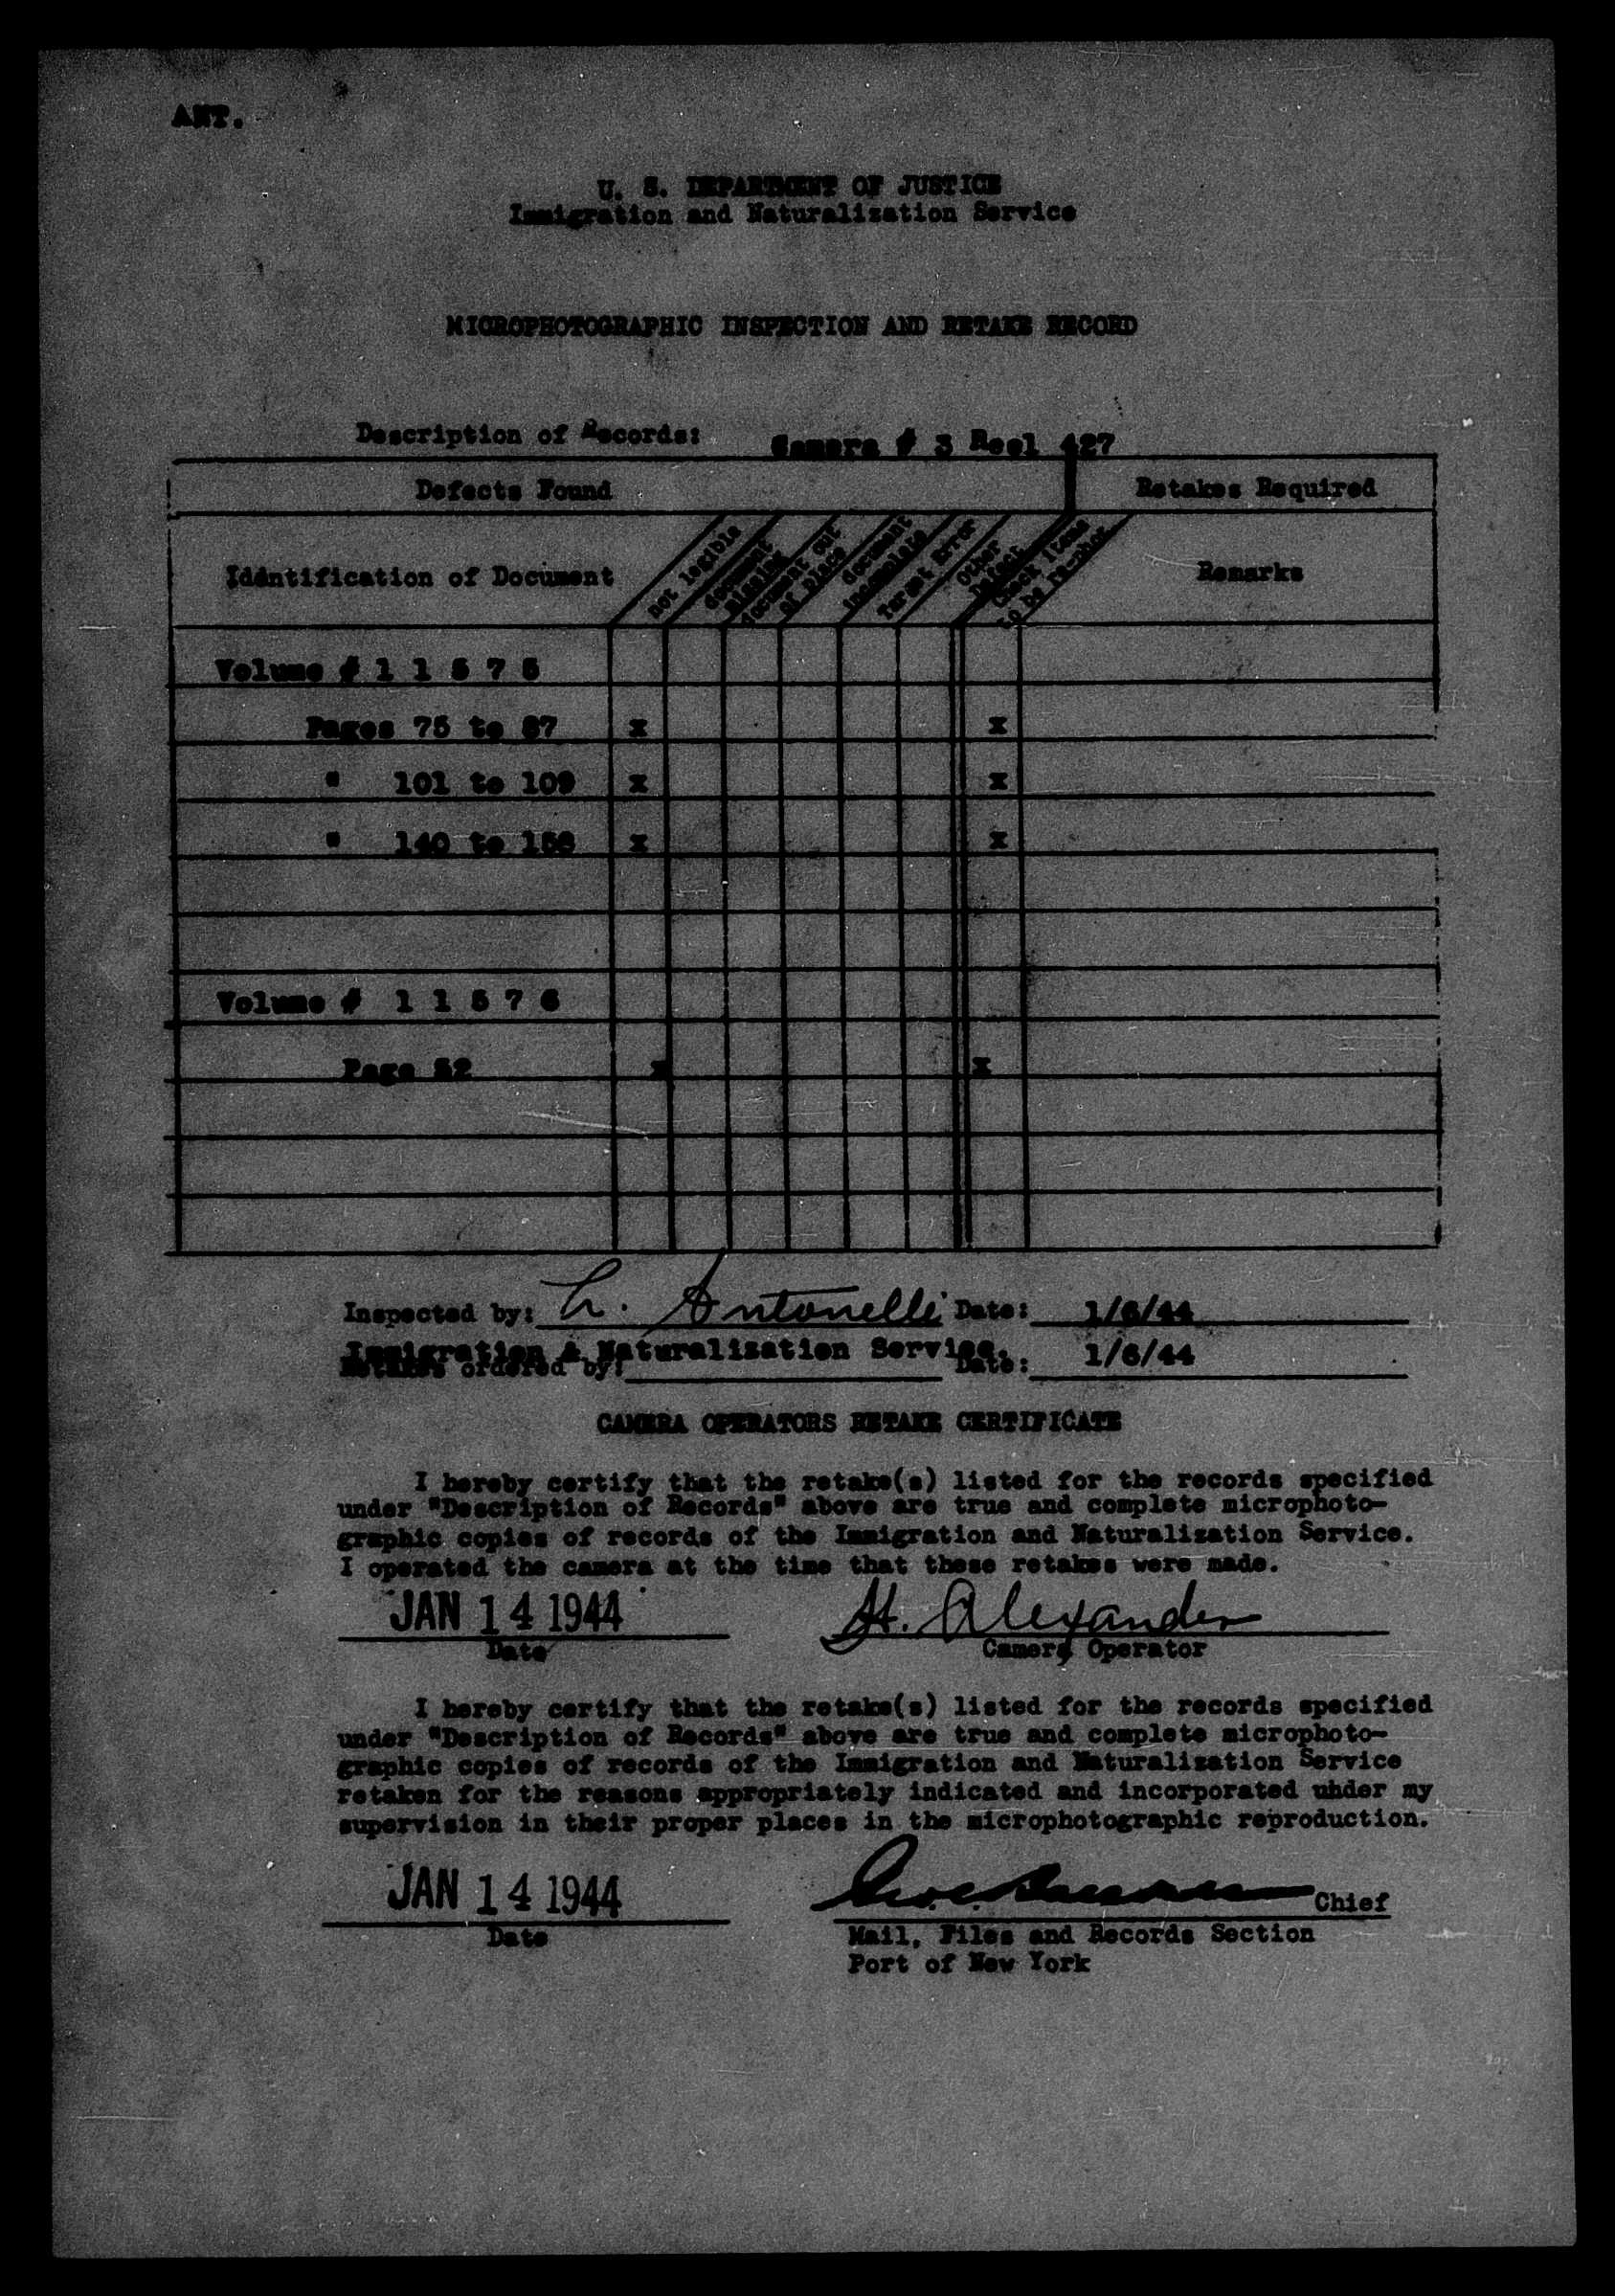 ANT.
U. S. DEPARTMENT OF JUSTICE
Immigration and Naturalization Service
MICROPHOTOGRAPHIC INSPECTION AND RETAKE RECORD
Description of Records: Camera # 3 Reel 427
Defects Found Retakes Required
Idéntification of Document
not legible
document missing
document out of place
document incomplete
Target Error
Other Defect
Check items to be re-phot
Remarks
Volume # 1 1 5 7 5
Pages 75 to 87 x x
" 101 to 109 x x
" 140 to 156 x x
Volume # 1 1 5 7 6
Page 52 x x
Inspected by: L. Antonelli Date: 1/6/44
Immigration & Naturalization Service.
Retakes ordered by: Date: 1/6/44
CAMERA OPERATORS RETAKE CERTIFICATE
I hereby certify that the retake(s) listed for the records specified
under "Description of Records" above are true and complete microphoto-
graphic copies of records of the Immigration and Naturalization Service.
I operated the camera at the time that these retakes were made.
JAN 14 1944 H. Alexander
Date Camera Operator
I hereby certify that the retake(s) listed for the records specified
under "Description of Records" above are true and complete microphoto-
graphic copies of records of the Immigration and Naturalization Service
retaken for the reasons appropriately indicated and incorporated uhder my
supervision in their proper places in the microphotographic reproduction.
JAN 14 1944 Chief
Date Mail, Files and Records Section
Port of New York